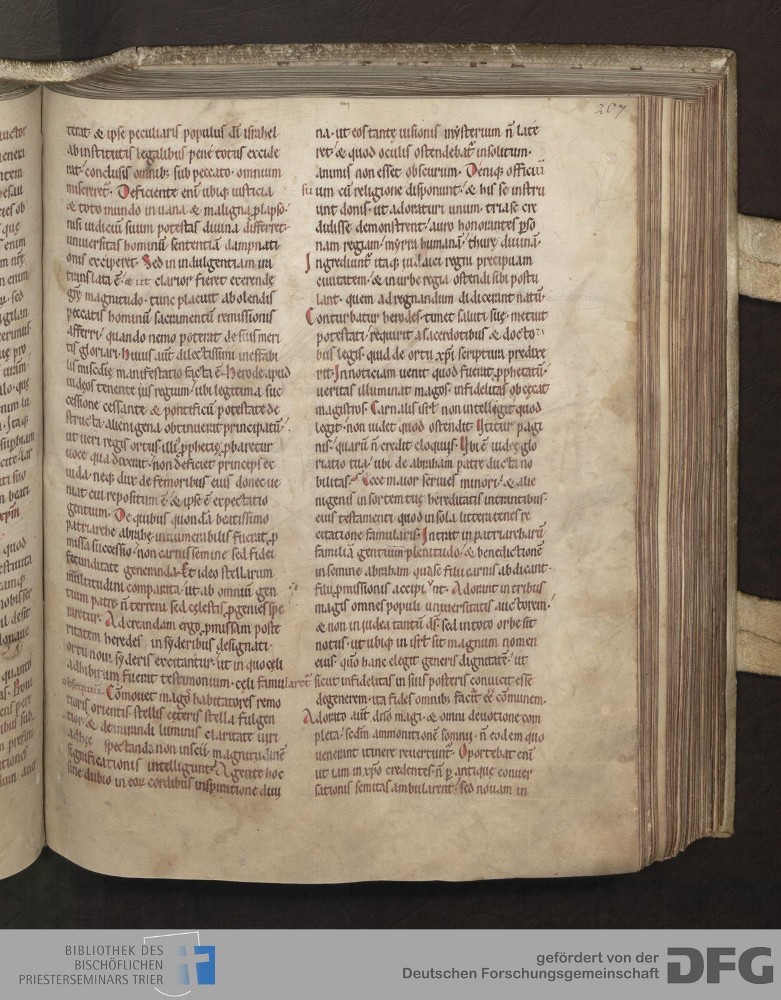 207
terat · & ipse peculiaris populus di israhel
ab institutis legalibus pene totus excide
rat · conclusis omnib; sub peccato · omnium
misereret᷑ · Deficiente eni ubiq; iusticia
& toto mundo in uana & maligna plapso ·
nisi iudiciu suum potestas diuina differret ·
uniuersitas hominu sententia dampnati
onis exciperet · Sed in indulgentiam ira
translata ē · & ut clarior fieret exerende
grę magnitudo · tunc placuit abolendis
peccatis hominu sacramentu remissionis
afferri · quando nemo poterat de suis meri
tis gloriari · Huius aut dilectissimi ineffabi
lis misedię manifestatio facta ē · Herode apud
iudeos tenente ius regium · ubi legitima suc
cessione cessante & pontificu potestate de
structa · alienigena obtinuerat principatu ·
ut ueri regis ortus illi pphetię pbaretur
uoce qua dixerat · non deficiet princeps ex
iuda · neq; dux de femoribus eius donec ue
niat cui repositum ē · & ipse ē expectatio
gentium · De quibus quonda beatissimo
patriarche abrahę innumerabilis fuerat p
missa successio · non carnis semine sed fidei
fecunditate generanda · Et ideo stellarum
multitudini comparata · ut ab omnium gen
tium patre n terreni sed celestis pgenies spe
raretur · Ad creandam ergo pmissam poste
ritatem heredes in syderibus designati ·
ortu noui syderis excitantur · ut in quo celi
adhibitum fuerat testimonium · celi famularet᷑
obsequiu · Comouet magos habitatores remo
tioris orientis stellis ceteris stella fulgen
tior · & de mirandi luminis claritate uiri
adhęc spectanda non inscii · magnitudine
significationis intelligunt · Agente hoc
sine dubio in eor cordibus inspiratione diui
na · ut eos tantę uisionis mysterium n late
ret · & quod oculis ostendebat᷑ insolitum ·
animis non esset obscurum · Deniq; officiu
suum cu religione disponunt · & his se instru
unt donis · ut adoraturi unum · tria se cre
didisse demonstrent · auro honorantes pso
nam regiam · myrra humana · thure diuina ·
Ingrediunt᷑ itaq; iudaici regni precipuam
ciuitatem · & in urbe regia ostendi sibi postu
lant · quem ad regnandum didicerant natu ·
Conturbatur herodes · timet saluti suę · metuit
potestati · requirit a sacerdotibus & docto
bus legis · quid de ortu xpi scriptura predixe
rit · In noticiam uenit quod fuerat pphetatu ·
ueritas illuminat magos · infidelitas obcecat
magistros · Carnalis isrl non intelligit quod
legit · non uidet quod ostendit · Utitur pagi
nis · quaru n credit eloquiis · Ubi ē iudee glo
riatio tua · ubi de abraham patre ducta no
bilitas · Ecce maior seruiet minori · & alie
nigenis in sortem tuę hereditatis intrantibus ·
eius testamenti quod in sola littera tenes re
citatione famularis · Intrat in patriarcharu
familia gentium plenitudo · & benedictione
in semine abraham quase filii carnis abdicant ·
filii pmissionis accipiunt · Adorant in tribus
magis omnes populi uniuersitatis auctorem ·
& non in iudea tantu ds · sed in toto orbe sit
notus · ut ubiq; in isrl sit magnum nomen
eius · quo hanc electi generis dignitate · ut
sicut infidelitas in suis posteris conuicit esse
degenerem · ita fides omnib; facit eē comunem ·
Adorato aut dno magi · & omni deuotione com
pleta · sedm ammonitione somnii · n eodem quo
uenerant itinere reuertunt᷑ · Oportebat eni
ut iam in xpo credentes · n p antique conuer
sationis semitas ambularent · sed nouam in
BIBLIOTHEK DES
BISCHÖFLICHEN
PRIESTERSEMINARS TRIER
gefördert von der
Deutschen Forschungsgemeinschaft
DFG